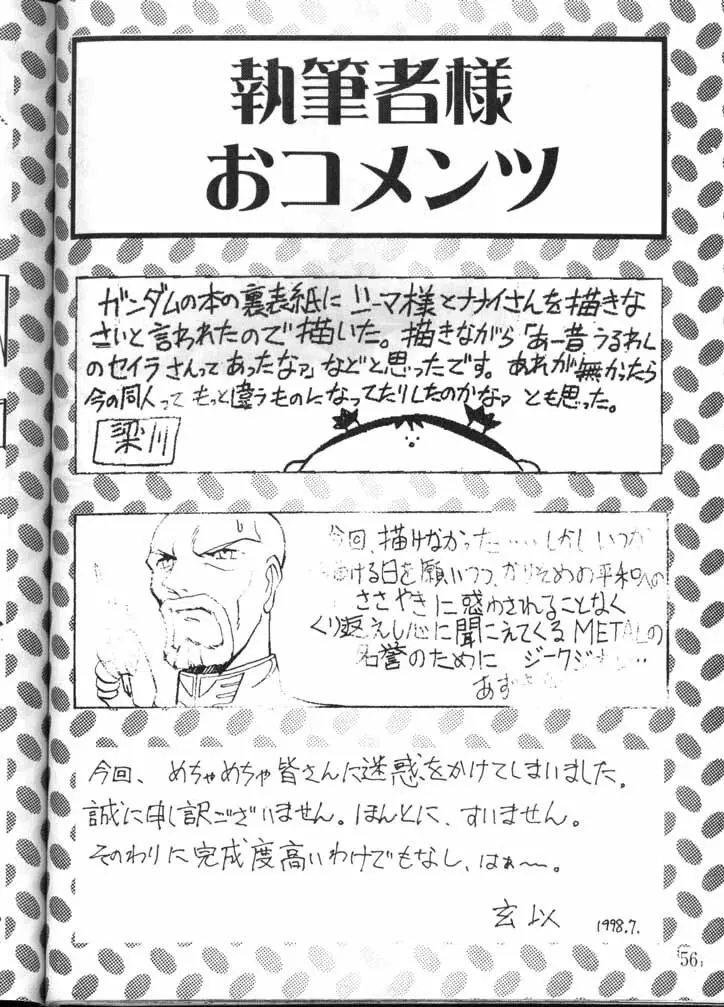 執筆者様
おコメンツ
ガンダムの本の裏表紙にシーマ様とナナイさんを描きな
さいと言われたので描いた。描きながら「あー昔うるわし
のセイラさんってあったなァ」などと思ったです。あれが無かったら
今の同人ってもっと違うものになってたりしたのかなァとも思った。
梁川
今回、描けなかった……しかしいつか
ける日を願いつつ、かりそめの平和への
ささやきに惑わされることなく
くり返えし心に聞こえてくるMETALの
名誉のために ジークジオン…
あず
今回、めちゃめちゃ皆さんに迷惑をかけてしまいました。
誠に申し訳ございません。ほんとに、すいません。
そのわりに完成度高いわけでもなし、はぁ〜。
玄以 1998.7.
56